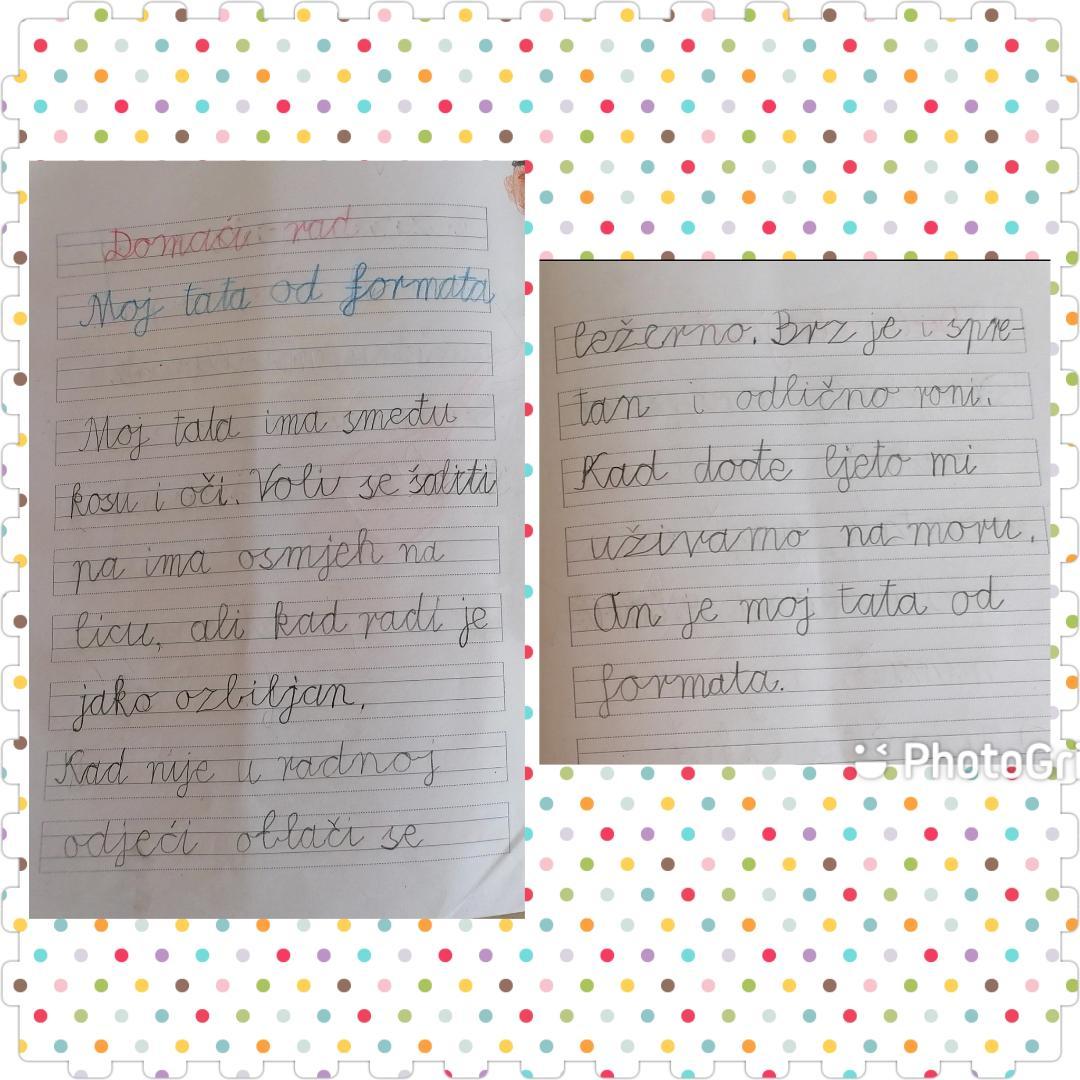 Domaći rad
Moj tata od formata
Moj tata ima smeđu
kosu i oči. Voli se šaliti
pa ima osmjeh na
licu, ali kad radi je
jako ozbiljan.
Kad nije u radnoj
odjeći oblači se
ležerno. Brz je i spre-
tan i odlično roni.
Kad dođe ljeto mi
uživamo na moru.
On je moj tata od
formata.
PhotoGr